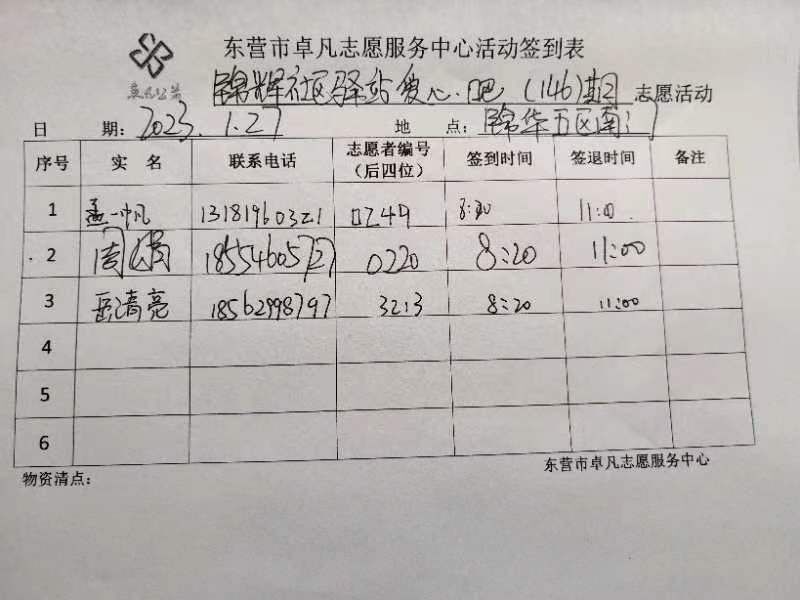 东营市卓凡志愿服务中心活动签到表
卓凡公益
锦辉社区驿站爱心吧(146)期 志愿活动
日 期: 2023.1.27 地 点: 锦华五区南门
序号 实 名 联系电话 志愿者编号(后四位) 签到时间 签退时间 备注
1 孟一帆 13181960321 0249 8:20 11:00
2 周娟 18554605727 0220 8:20 11:00
3 岳清亮 18562998797 3213 8:20 11:00
4
5
6
物资清点: 东营市卓凡志愿服务中心